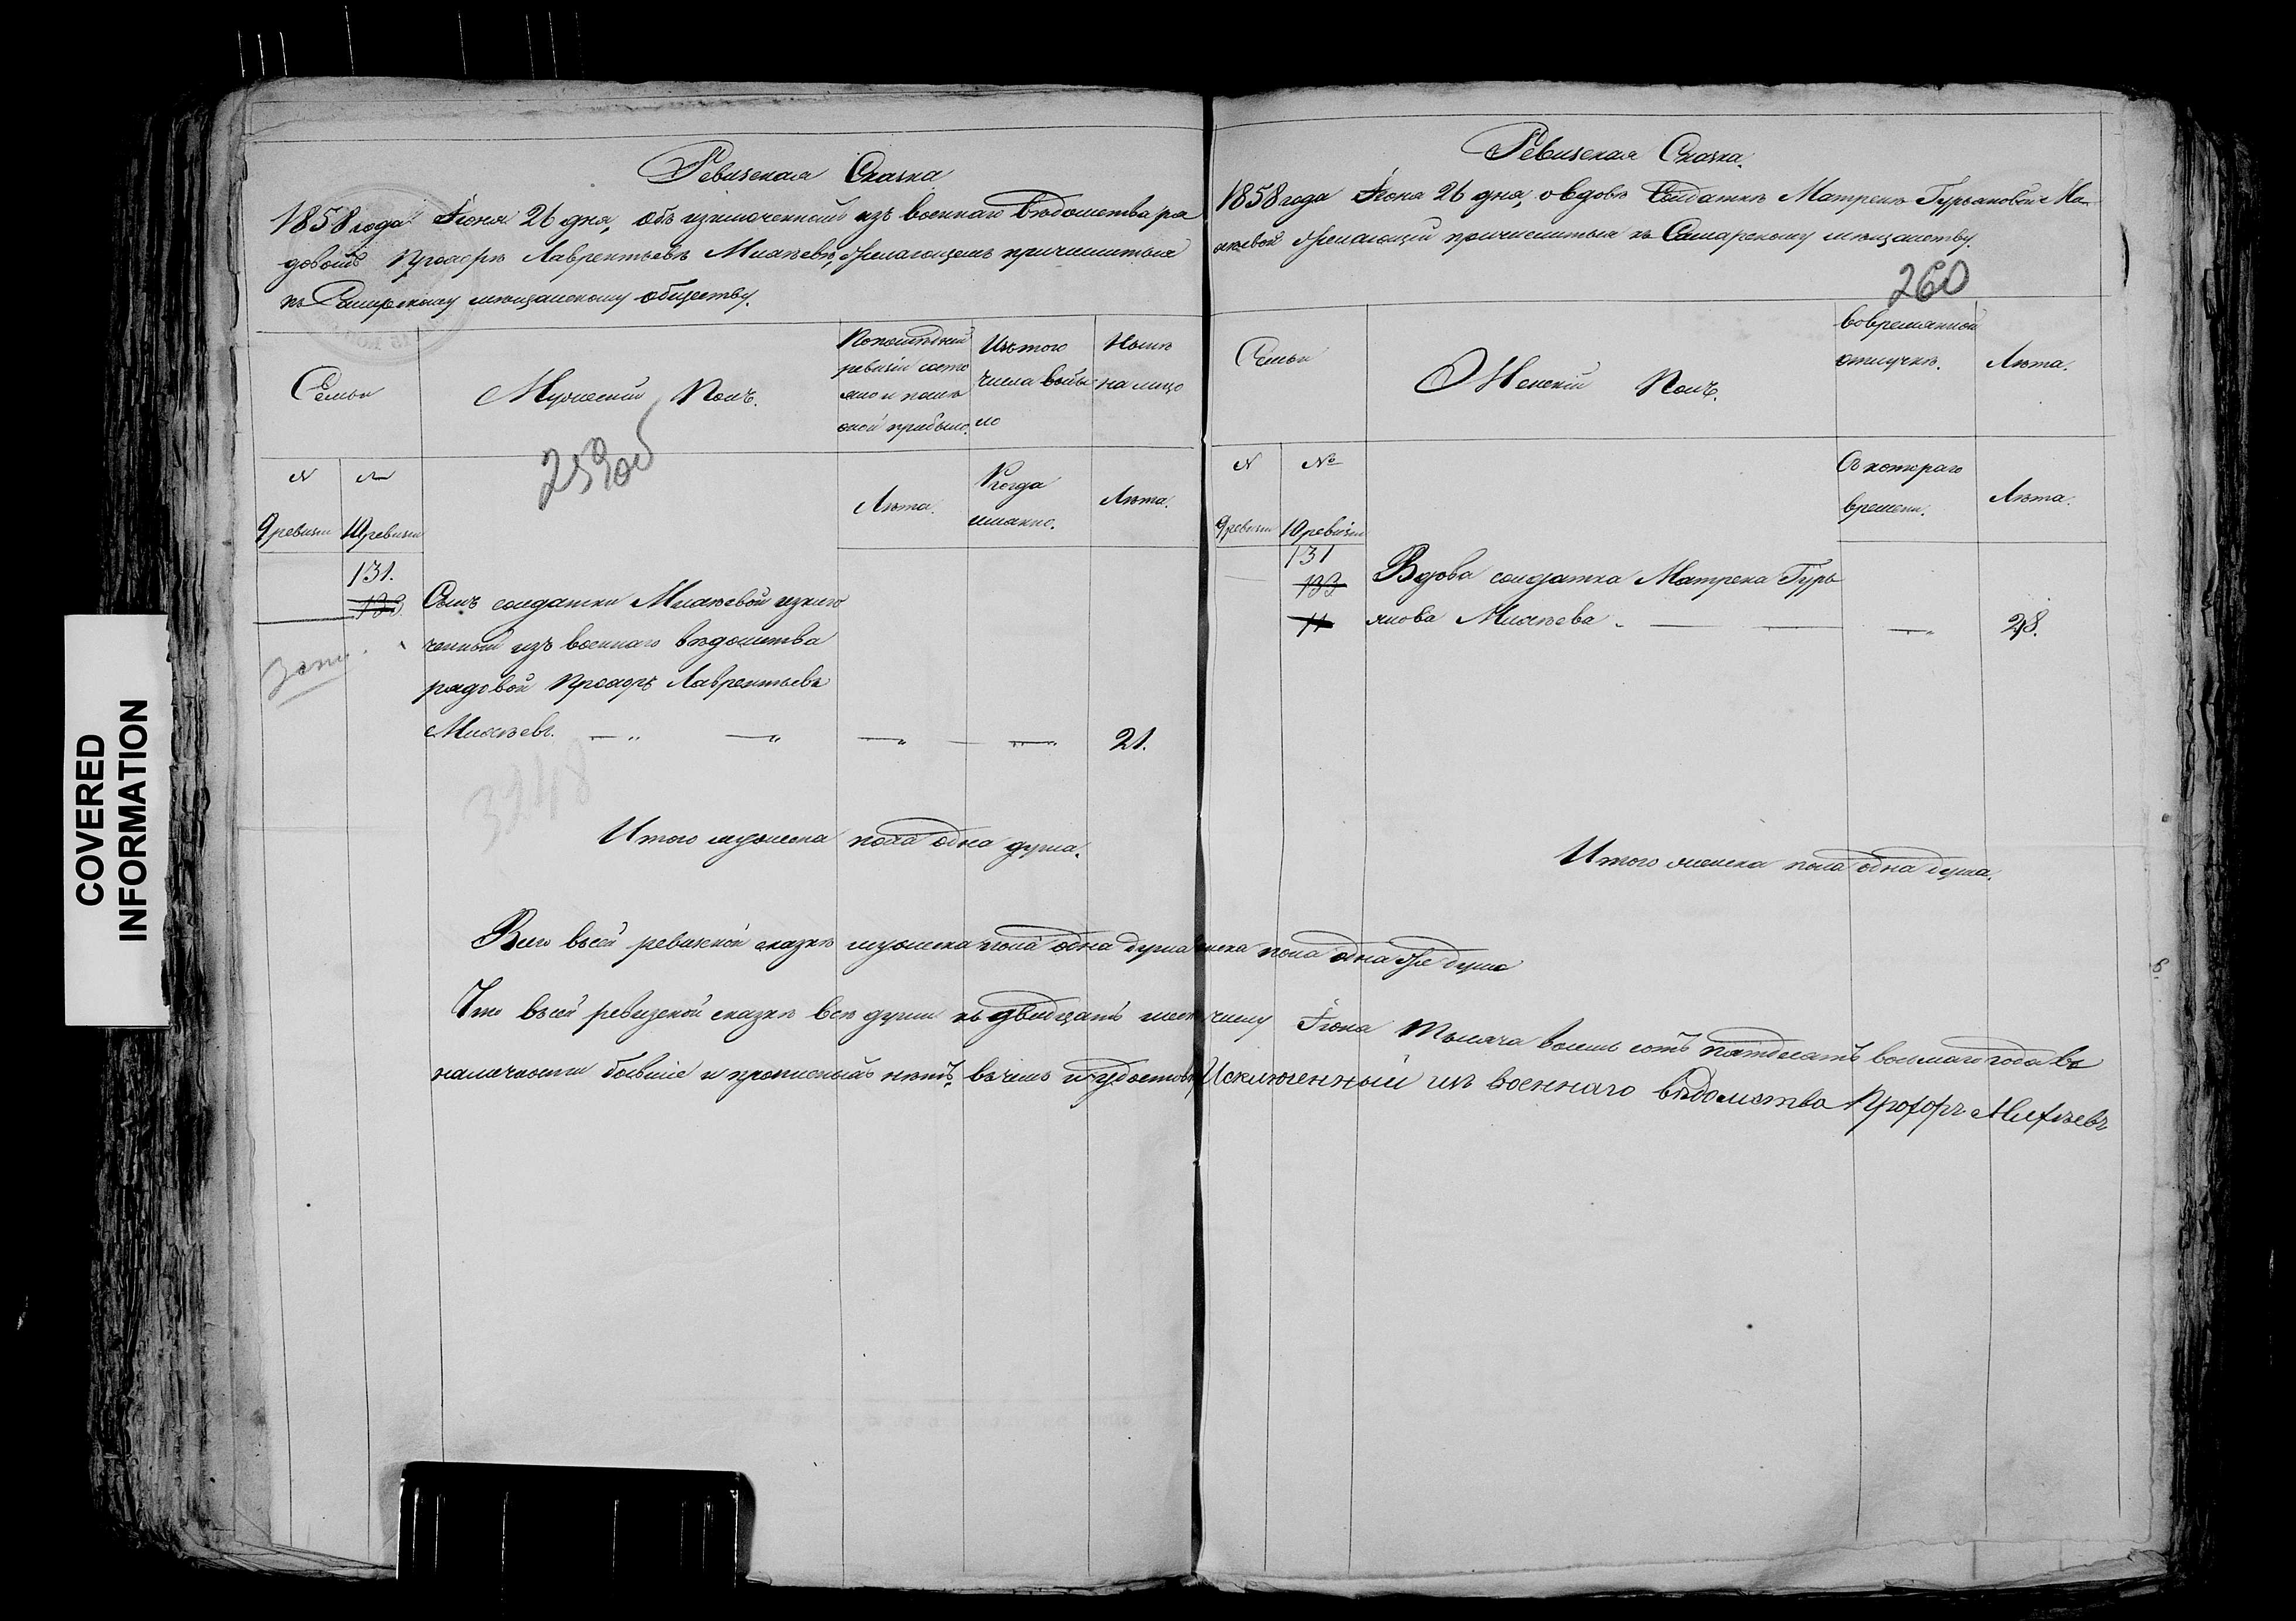 Ревизская Сказка
1858 года Іюня 26 дня, объ изключенномъ изъ военнаго вѣдомства ря
довомъ Прохорѣ Лаврентьевѣ Михѣевѣ, желающемъ причислиться
къ Самарскому мѣщанскому обществу.
Семьи
Мужеский Полъ.
По последней
ревизіи состо
яло и после
оной прибыло.
Изъ того
числа выбы
ло
Нынѣ
на лицо
259 об
N
№
9 ревизіи
10 ревизіи
Лѣта.
Когда
имянно.
Лѣта.
131.
133.
Сынъ солдатки Михѣевой изклю
ченный изъ военнаго вѣдомства
рядовой Прохоръ Лаврентьевъ
Михѣевъ. — „ — „ — „ — „ 21.
3248
Итого мужеска пола одна душа.
Ревизская Сказка.
1858 года Іюня 26 дня, о вдовѣ Солдаткѣ Матренѣ Гурьяновой Ми-
хѣевой желающей причислиться къ Самарскому мѣщанству.
260
Семьи
Женскій Полъ.
Во временной
отлучкѣ.
Лѣта.
N
№
9 ревизіи
10 ревизіи
Съ котораго
времени.
Лѣта.
131
133
11
Вдова солдатка Матрена Гурь
янова Михѣева. — — — „ 48.
Итого женска пола одна душа.
Всего въ сей ревизской сказкѣ мужеска пола одна душа женска пола одна же душа
Что въ сей ревизской сказкѣ всѣ души къ двадцать шест числу Іюня тысяча восемь сотъ пятдесятъ восьмаго года въ
наличности бывшіе и прописныхъ нѣтъ, въ чемъ и удостовѣ Исключенный изъ военнаго вѣдомства Прохоръ Михѣевъ
COVERED
INFORMATION